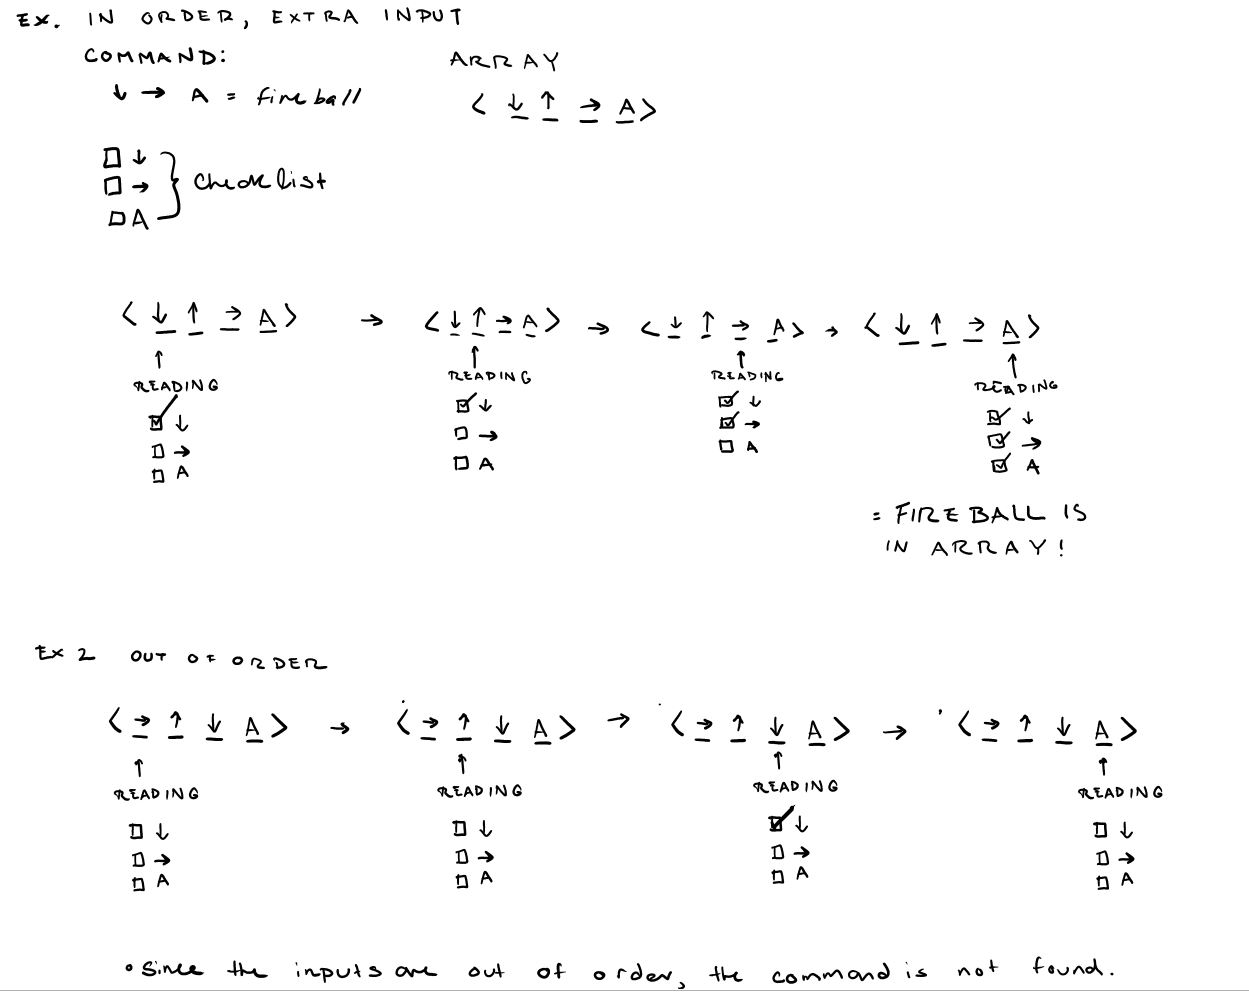 EX. IN ORDER, EXTRA INPUT
COMMAND:
↓ → A = fireball
ARRAY
< ↓ ↑ → A >
☐ ↓
☐ →
☐ A
Checklist
< ↓ ↑ → A > → < ↓ ↑ → A > → < ↓ ↑ → A > → < ↓ ↑ → A >
↑ ↑ ↑ ↑
READING READING READING READING
☑ ↓ ☑ ↓ ☑ ↓ ☑ ↓
☐ → ☐ → ☑ → ☑ →
☐ A ☐ A ☐ A ☑ A
= FIREBALL IS
IN ARRAY!
EX 2 OUT OF ORDER
< → ↑ ↓ A > → < → ↑ ↓ A > → < → ↑ ↓ A > → < → ↑ ↓ A >
↑ ↑ ↑ ↑
READING READING READING READING
☐ ↓ ☐ ↓ ☑ ↓ ☐ ↓
☐ → ☐ → ☐ → ☐ →
☐ A ☐ A ☐ A ☐ A
• Since the inputs are out of order, the command is not found.